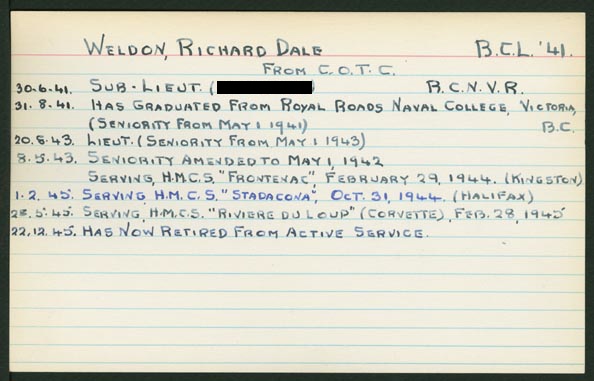 WELDON, RICHARD DALE B.C.L. '41.
FROM C.O.T.C.
30.6.41. SUB-LIEUT. ( ) R.C.N.V.R.
31.8.41. HAS GRADUATED FROM ROYAL ROADS NAVAL COLLEGE, VICTORIA, B.C.
(SENIORITY FROM MAY 1 1941)
20.5.43. LIEUT. (SENIORITY FROM MAY 1 1943)
8.5.43. SENIORITY AMENDED TO MAY 1, 1942
SERVING, H.M.C.S. "FRONTENAC", FEBRUARY 29, 1944. (KINGSTON)
1.2.45. SERVING H.M.C.S. "STADACONA", OCT. 31, 1944. (HALIFAX)
28.5.45. SERVING, H.M.C.S. "RIVIERE DU LOUP" (CORVETTE), FEB. 28, 1945
22.12.45. HAS NOW RETIRED FROM ACTIVE SERVICE.